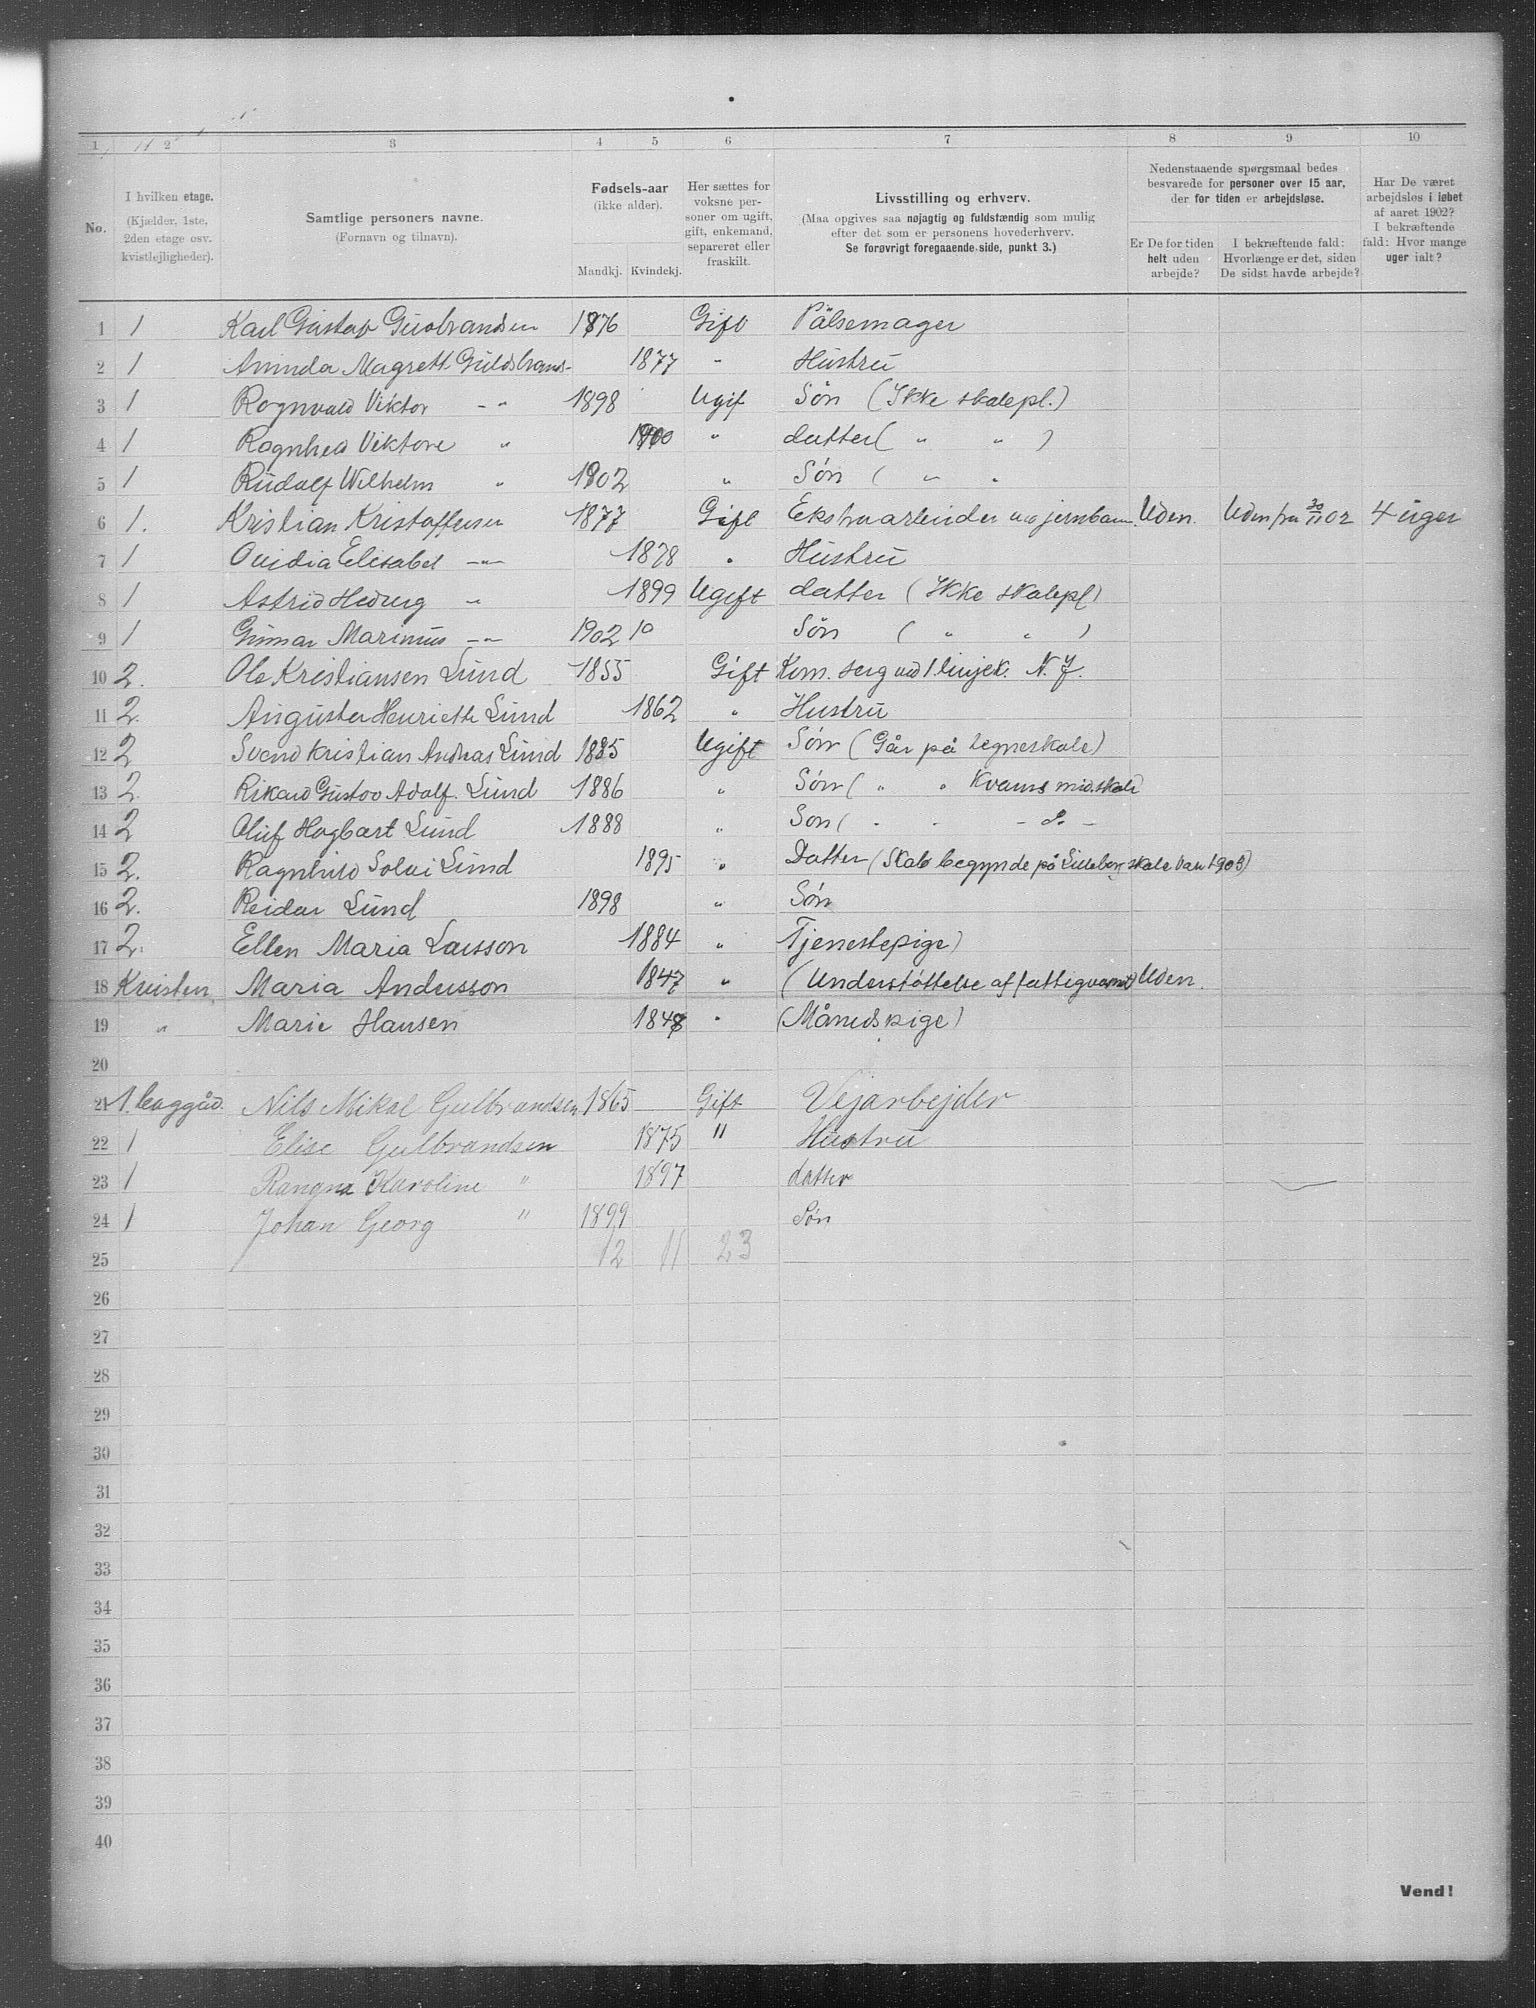 1 2 3 4 5 6 7 8 9 10
No.
I hvilken etage.
(Kjælder, 1ste,
2den etage osv.
kvistlejligheder).
Samtlige personers navne.
(Fornavn og tilnavn).
Fødsels-aar
(ikke alder).
Mandkj. Kvindekj.
Her sættes for
voksne per-
soner om ugift,
gift, enkemand,
separeret eller
fraskilt.
Livsstilling og erhverv.
(Maa opgives saa nøjagtig og fuldstændig som mulig
efter det som er personens hovederhverv.
Se forøvrigt foregaaende side, punkt 3.)
Nedenstaaende spørgsmaal bedes
besvarede for personer over 15 aar,
der for tiden er arbejdsløse.
Er De for tiden
helt uden
arbejde?
I bekræftende fald:
Hvorlænge er det, siden
De sidst havde arbejde?
Har De været
arbejdsløs i løbet
af aaret 1902?
I bekræftende
fald: Hvor mange
uger ialt?
1 1 Karl Gustav Gulbrandsen 1876 Gift Pölsemager
2 1 Magrett Guldsbrands- 1877 " Hustru
3 1 Rognvald Viktor -"- 1898 Ugif Sön (Ikke skolepl.)
4 1 Ragnhild Viktore " 1900 " datter ( " " )
5 1 Rudolf Wilhelm " 1902 " Sön ( " "
6 1. Kristian Kristoffersen 1877 Gift Ekstraarbeider ved jernban. Uden. Uden fra 30/11 02 4 uger
7 1 Ovidia Elisabet -"- 1878 " Hustru
8 1 Astrid Hedvig " 1899 Ugift datter (Ikke skolepl)
9 1 Gunnar Marinius -"- 1902 10 Sön ( " " )
10 2. Ole Kristiansen Lund 1855 Gift Kom. serg ved 1 linjek. N. J.
11 2. Augusta Henriette Lund 1862 " Hustru
12 2 Svend Kristian Andreas Lund 1885 Ugift Sön (Går på tegneskole)
13 2. Rikard Gustov Adolf. Lund 1886 " Sön ( " " Kvams mid.skole
14 2 Oluf Hagbart Lund 1888 " Sön ( " " - do -
15 2. Ragnhild Solvei Lund 1895 " Datter (Skal begynde på Lilleborg skole Jan 1903)
16 2. Reidar Lund 1898 " Sön
17 2. Ellen Maria Larsson 1884 " Tjenestepige)
18 Kvisten. Maria Andersson 1847 " (Understöttelse af fattigvæsnet) Uden.
19 " Marie Hansen 1848 " (Månedspige)
20
21 1. baggård. Nils Mikal Gulbrandsen 1865 Gift Vejarbejder
22 1 Elise Gulbrandsen 1875 " Hustru
23 1 Rangna Karoline " 1897 datter
24 1 Johan Georg " 1899 Sön
25 12 11 23
26
27
28
29
30
31
32
33
34
35
36
37
38
39
40
Vend!